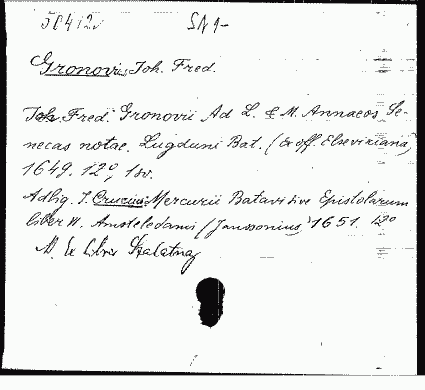 SN 1-
Gronovius Joh. Fred.
Joh. Fred. Gronovii Ad L. & M. Annaeos Se-
necas notae. Lugduni Bat. (Ex off. Elseviriana)
1649. 12°, 1 sv.
Adlig. J. Crucius: Mercurii Batavi sive Epistolarum
liber IV. Amstelodami (Janssonius) 1651. 12°
Ex libris